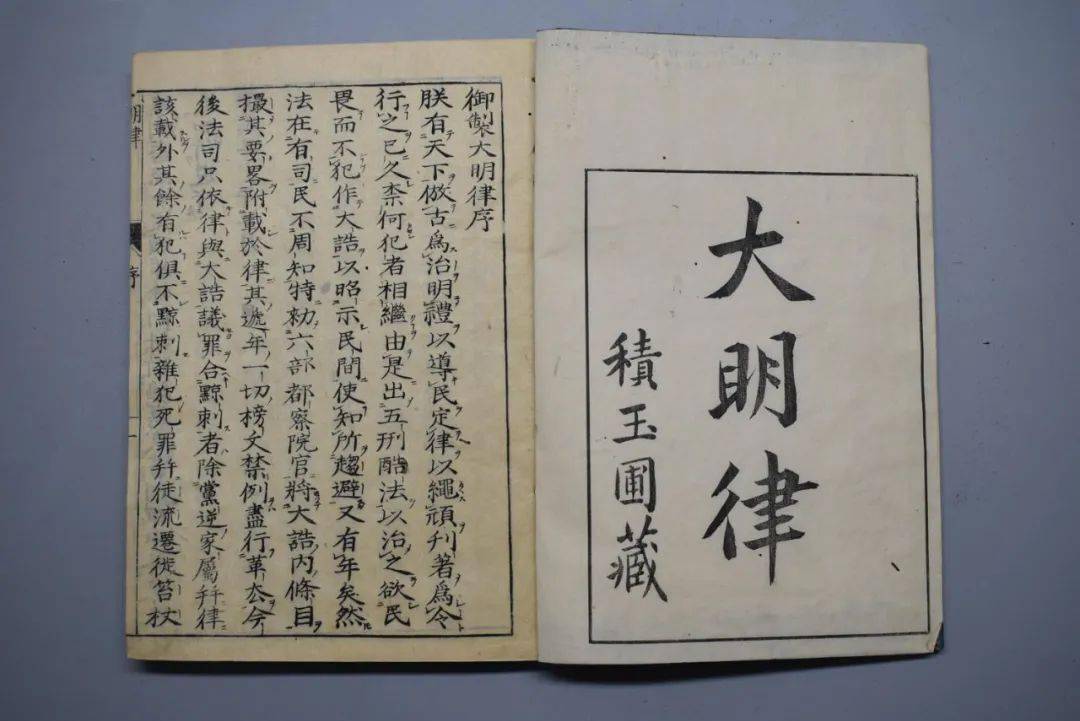 大明律
積玉圃藏
御製大明律序
朕有天下倣古爲治明禮以導民定律以繩頑刋著爲令
行之已久柰何犯者相繼由是出五刑酷法以治之欲民
畏而不犯作大誥以昭示民間使知所趨避又有年矣然
法在有司民不周知特勑六部都察院官將大誥內條目
撮其要畧附載於律其遞年一切榜文禁例盡行革去今
後法司只依律與大誥議罪合黥刺者除黨逆家屬幷律
該載外其餘有犯俱不黥刺雜犯死罪幷徒流遷徙笞杖
明律
序
一